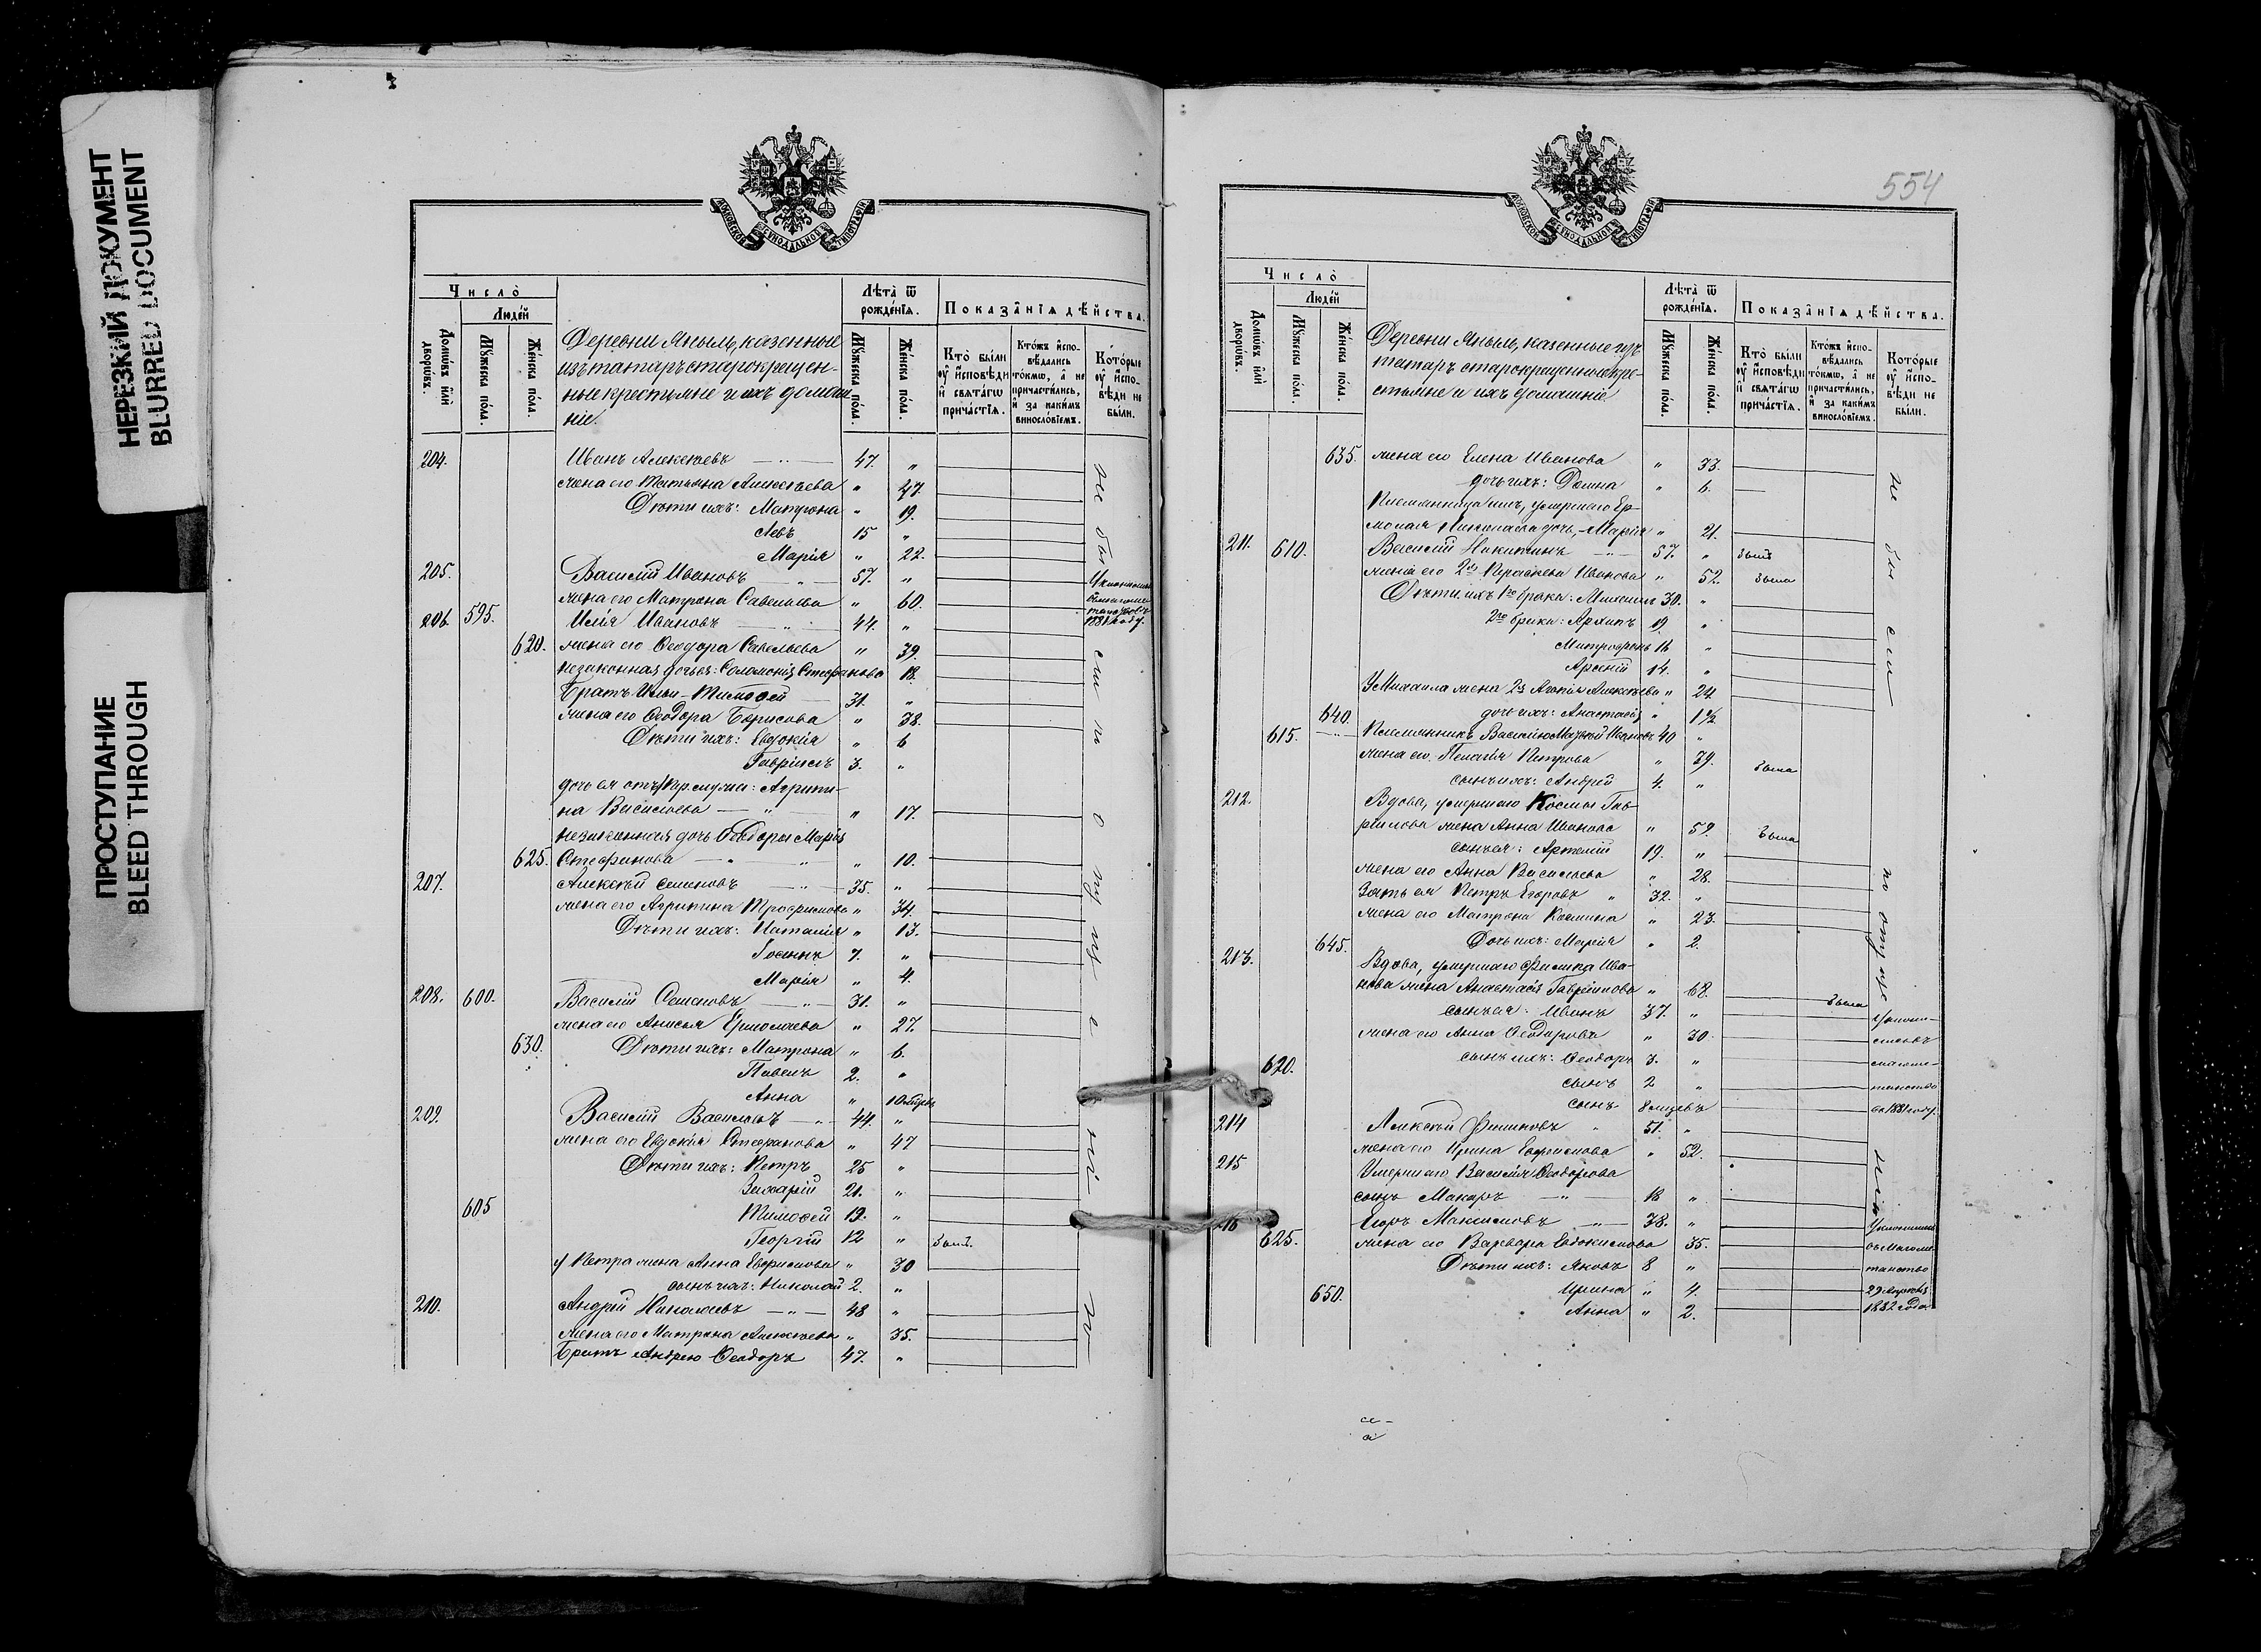 НЕРЕЗКИЙ ДОКУМЕНТ
BLURRED DOCUMENT
ПРОСТУПАНИЕ
BLEED THROUGH
МОСКОВСКОЙ СѴНОДАЛЬНОЙ ТИПОГРАФІИ
Число̀
Людей
Домѡвъ илѝ дворѡвъ.
Мꙋжеска пола.
Женска пола.
Деревни Яныль, казенные
изъ татаръ старокрещен-
ные крестьяне и ихъ домаш-
ніе.
Лѣта̀ ѿ рожденїѧ.
Мꙋжеска пола.
Женска пола.
Показанїѧ дѣйства.
Кто̀ были ᲂу҆ исповѣди и҆ свѧтагѡ причастїѧ.
Ктожъ исповѣдались токмѡ, а҆ не причастились, и҆ за какимъ винословїемъ.
Которые ᲂу҆ исповѣди не были.
204. Иванъ Алексѣевъ 47. "
жена его Татьяна Алексѣева " 47.
Дѣти ихъ: Матрона " 19.
Левъ 15 "
Марія " 22.
205. Василій Ивановъ 57. "
жена его Матрона Савельева " 60.
206. 595. Илія Ивановъ 44. "
620. жена его Ѳеодора Савельева " 39.
незаконная дочь ея: Соломонія Стефанова 18.
Братъ Ильи - Тимоѳей 31. "
жена его Ѳеодора Борисова " 38.
Дѣти ихъ: Евдокія " 6
Гавріилъ 3. "
дочь ея отъ 1 мужа: Агрипи-
на Васильева " 17.
незаконная дочь Ѳеодоры Марія
625. Стефанова " 10.
207. Алексѣй Семеновъ 35. "
жена его Агрипина Трофимова " 34.
Дѣти ихъ: Наталія " 13.
Іоаннъ 7. "
Марія " 4.
208. 600. Василій Семеновъ 31. "
жена его Анисья Ермолаева " 27.
630. Дѣти ихъ: Матрона " 6.
Павелъ 2. "
Анна "
209. Василій Васильевъ 44. "
жена его Евдокія Стефанова " 47
Дѣти ихъ: Петръ 25 "
Захарій 21. "
605 Тимоѳей 19. "
Георгій 12 " былъ.
у Петра жена Анна Ефримова " 30
сынъ ихъ: Николай 2. "
210. Андрей Николаевъ 48 "
жена его Матрона Алексѣева " 35.
Братъ Андрею Ѳеодоръ 47. "
не были по нуждѣ
554
МОСКОВСКОЙ СѴНОДАЛЬНОЙ ТИПОГРАФІИ
Число̀
Людей
Домѡвъ илѝ дворѡвъ.
Мꙋжеска пола.
Женска пола.
Деревни Яныль, казенные изъ
татаръ старокрещенные кре-
стьяне и ихъ домашніе
Лѣта̀ ѿ рожденїѧ.
Мꙋжеска пола.
Женска пола.
Показанїѧ дѣйства.
Кто̀ были ᲂу҆ исповѣди и҆ свѧтагѡ причастїѧ.
Ктожъ исповѣдались токмѡ, а҆ не причастились, и҆ за какимъ винословїемъ.
Которые ᲂу҆ исповѣди не были.
635. жена его Елена Иванова " 33.
дочь ихъ: Домна " 6.
Племянница ихъ, умершаго Ер-
молая Николаева дочь, - Марія " 21.
211. 610. Василій Никитинъ 57. " былъ
жена его 2я Параскева Иванова " 52. была
Дѣти ихъ 1го брака: Михаилъ 30. "
2го брака: Архипъ 19. "
Митрофанъ 16 "
Арсеній 14. "
У Михаила жена 2я Агапія Алексѣева " 24.
640. дочь ихъ: Анастасія " 1½
615. Племянникъ Василію Матвей Ивановъ 40 "
жена его Пелагія Петрова " 39. была
сынъ ихъ: Андрей 4. "
212. Вдова, умершаго Космы Гав-
рилова жена Анна Иванова " 52. была
сынъ ея: Артемій 19. "
жена его Анна Васильева " 28.
Зять ея Петръ Егоровъ 32. "
жена его Матрона Космина " 23.
645. Дочь ихъ: Марія " 2.
213. Вдова, умершаго Филипа Ива-
нова жена Анастасія Гавриилова " 68. была
сынъ ея: Иванъ 37. "
жена его Анна Ѳеодорова " 30.
620. сынъ ихъ: Ѳеодоръ 3. "
сынъ 2 "
сынъ
214 Алексѣй Филиповъ 51. "
жена его Ирина Ефримова " 52.
215 Умершаго Василія Ѳеодорова
сынъ Макаръ 18 "
216 Егоръ Максимовъ 38. "
625. жена его Варвара Евдокимова 35.
Дѣти ихъ: Яковъ 8 "
650. Ирина " 4.
Анна " 2.
не были по отлуч
Уклони-
лись въ
магоме-
танство
въ 1881 году.
Уклонились
въ магоме-
танство
29 Апрѣля
1882 года